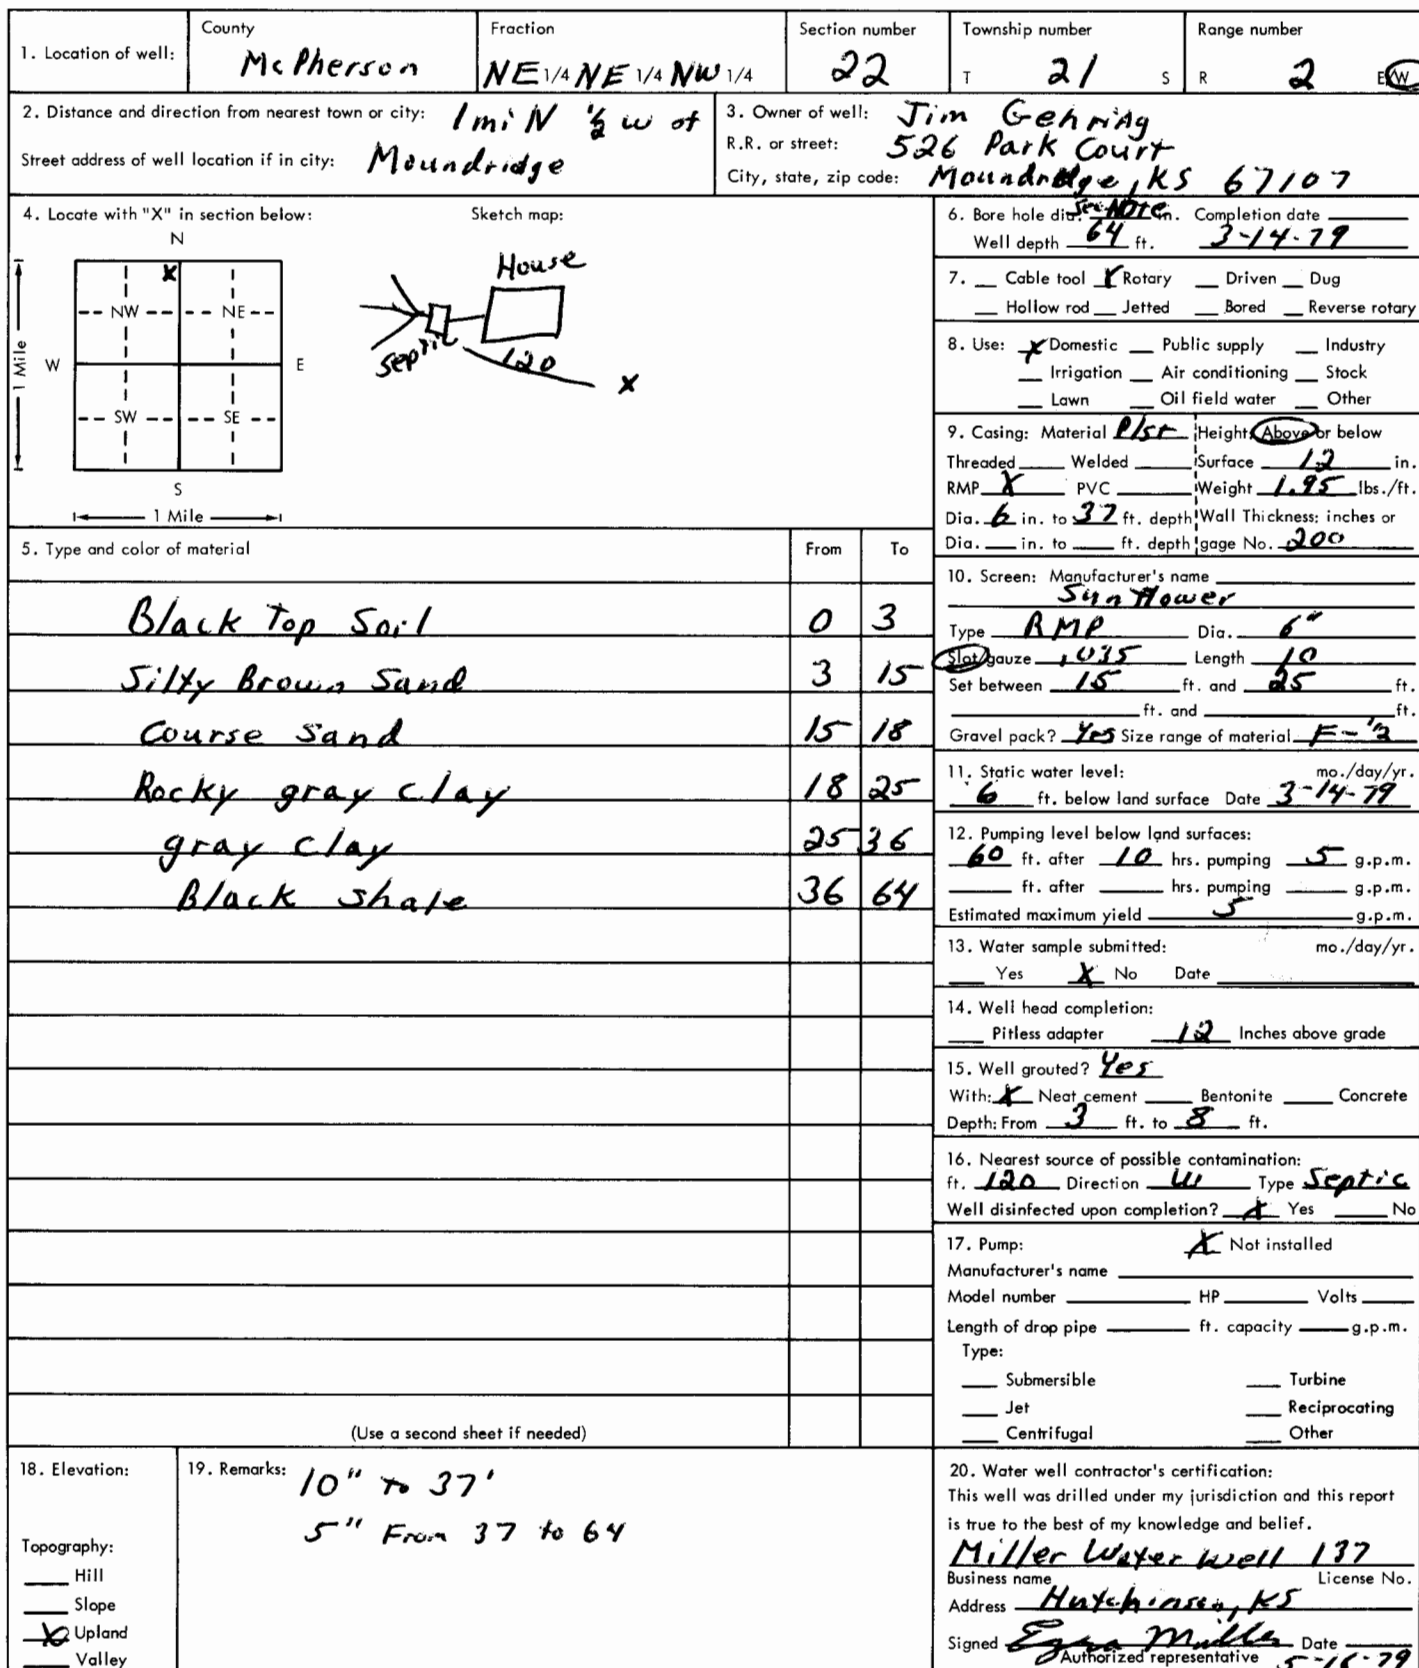 1. Location of well: County McPherson Fraction NE 1/4 NE 1/4 NW 1/4 Section number 22 Township number T 21 S Range number R 2 E/W
2. Distance and direction from nearest town or city: 1 mi N ½ W of
Street address of well location if in city: Moundridge
3. Owner of well: Jim Gehring
R.R. or street: 526 Park Court
City, state, zip code: Moundridge, KS 67107
4. Locate with "X" in section below:
N
X
NW NE
W E
SW SE
S
1 Mile
1 Mile
Sketch map:
House
Septic
120
X
5. Type and color of material From To
Black Top Soil 0 3
Silty Brown Sand 3 15
Course Sand 15 18
Rocky gray clay 18 25
gray clay 25 36
Black shale 36 64
(Use a second sheet if needed)
6. Bore hole dia. See Note in. Completion date
Well depth 64 ft. 3-14-79
7. Cable tool X Rotary Driven Dug
Hollow rod Jetted Bored Reverse rotary
8. Use: X Domestic Public supply Industry
Irrigation Air conditioning Stock
Lawn Oil field water Other
9. Casing: Material Plst Height: Above or below
Threaded Welded Surface 12 in.
RMP X PVC Weight 1.95 lbs./ft.
Dia. 6 in. to 37 ft. depth Wall Thickness: inches or
Dia. in. to ft. depth gage No. 200
10. Screen: Manufacturer's name
Sunflower
Type RMP Dia. 6"
Slot/gauze .035 Length 10
Set between 15 ft. and 25 ft.
ft. and ft.
Gravel pack? Yes Size range of material F-1/2
11. Static water level: mo./day/yr.
6 ft. below land surface Date 3-14-79
12. Pumping level below land surfaces:
60 ft. after 10 hrs. pumping 5 g.p.m.
ft. after hrs. pumping g.p.m.
Estimated maximum yield 5 g.p.m.
13. Water sample submitted: mo./day/yr.
Yes X No Date
14. Well head completion:
Pitless adapter 12 Inches above grade
15. Well grouted? Yes
With: X Neat cement Bentonite Concrete
Depth: From 3 ft. to 8 ft.
16. Nearest source of possible contamination:
ft. 120 Direction W Type Septic
Well disinfected upon completion? X Yes No
17. Pump: X Not installed
Manufacturer's name
Model number HP Volts
Length of drop pipe ft. capacity g.p.m.
Type:
Submersible Turbine
Jet Reciprocating
Centrifugal Other
18. Elevation:
Topography:
Hill
Slope
X Upland
Valley
19. Remarks: 10" to 37'
5" From 37 to 64
20. Water well contractor's certification:
This well was drilled under my jurisdiction and this report
is true to the best of my knowledge and belief.
Miller Water Well 137
Business name License No.
Address Hutchinson, KS
Signed Ezra Miller Date
Authorized representative 5-16-79